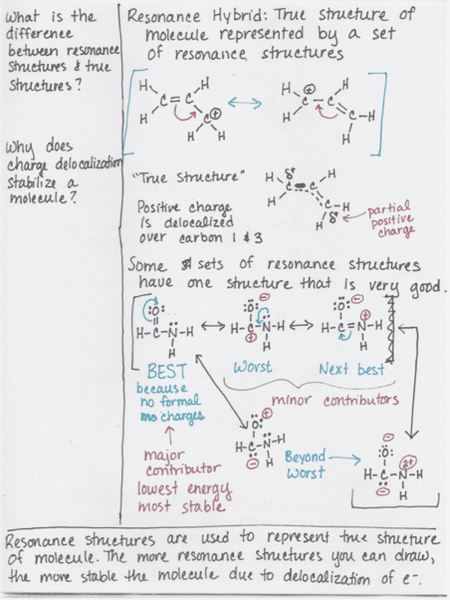 What is the
difference
between resonance
structures & true
structures?
Why does
charge delocalization
stabilize a
molecule?
Resonance Hybrid: True structure of
molecule represented by a set
of resonance structures
H H
C=C
H C ⊕
H H
H ⊕ H
C-C
H C-H
H
"True Structure"
Positive charge
is delocalized
over carbon 1 & 3
H δ+ H
C C
H C-H
H δ+
partial
positive
charge
Some sets of resonance structures
have one structure that is very good.
:O:
H-C-N-H
H
:O: ⊖
H-C-N-H
⊕ H
:O: ⊖
H-C=N-H
⊕
H
BEST
because
no formal
charges
Worst
Next best
minor contributors
major
contributor
lowest energy
most stable
:O ⊕
H-C-N-H
⊖ H
Beyond
worst
⊖
:O:
H-C-N-H
2+
⊖ H
Resonance structures are used to represent true structure
of molecule. The more resonance structures you can draw,
the more stable the molecule due to delocalization of e-.